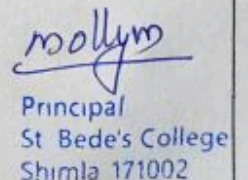 mollym
Principal
St Bede's College
Shimla 171002